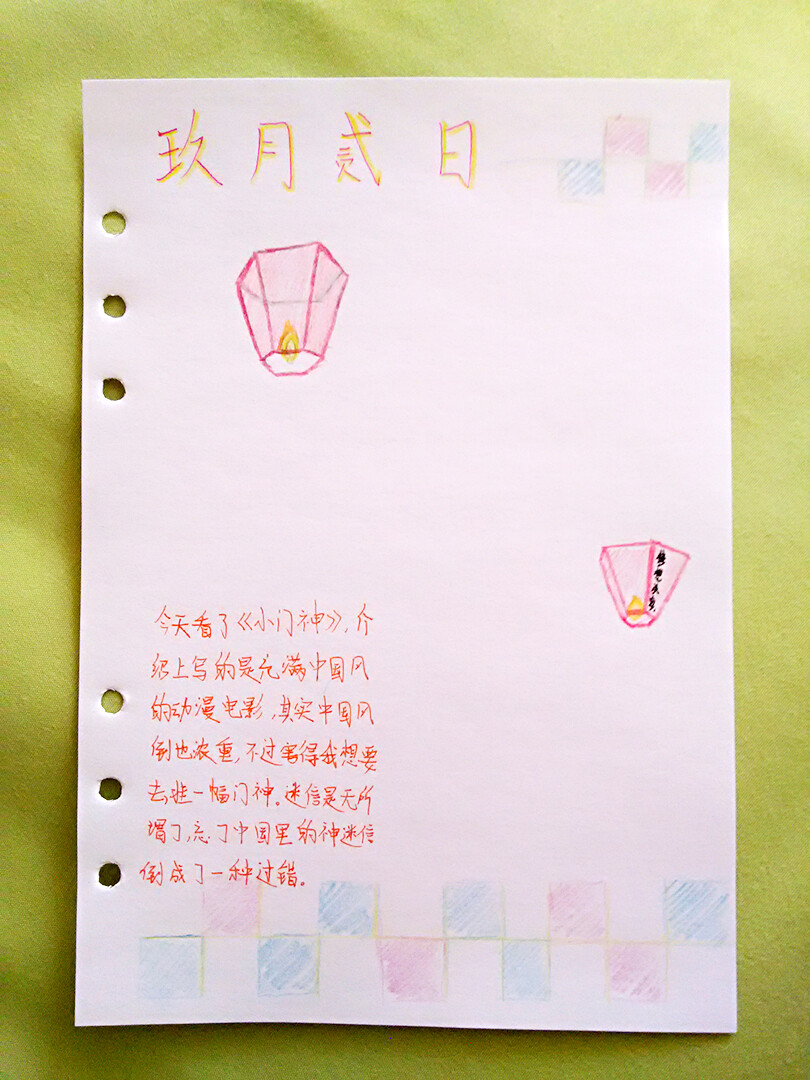 玖月贰日
今天看了《小门神》,介
绍上写的是充满中国风
的动漫电影,其实中国风
倒也浓重,不过害得我想要
去 一幅门神。迷信是无所
谓了,忘了中国里的神迷信
倒成了一种过错。